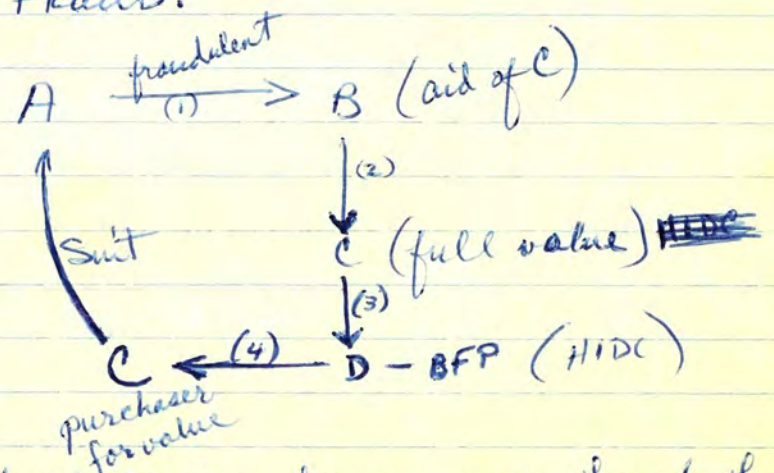 Fraud.
fraudulent
A (1) B (aid of C)
(2)
Suit C (full value) HIDC
(3)
C (4) D - BFP (HIDC)
purchaser
for value